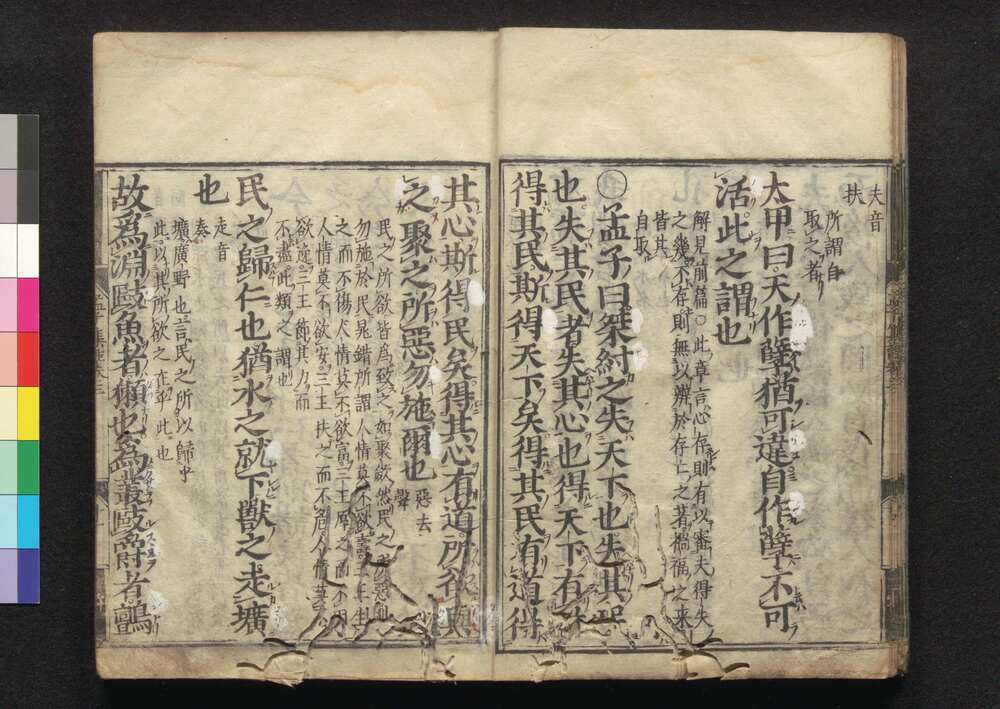 夫音
扶
所謂自
取之者
太甲曰天作孽猶可違自作孽不可
活此之謂也
解見前篇○此章言心存則有以審夫得失
之幾不存則無以辨於存亡之著禍福之来
皆其
自取
○孟子曰桀紂之失天下也失其民
也失其民者失其心也得天下有
得其民斯得天下矣得其民有道得
其心斯得民矣得其心有道所欲與
之聚之所惡勿施爾也
惡去
聲
民之所欲皆為致之如聚斂然民之所惡則
勿施於民晁錯所謂人情莫不欲壽三王生
之而不傷人情莫不欲富三王厚之而不困
人情莫不欲安三王扶之而不危人情莫不
欲逸三王節其力而
不盡此類之謂也
民之歸仁也猶水之就下獸之走壙
也
走音
奏
壙廣野也言民之所以歸乎
此以其所欲之在乎此也
故為淵敺魚者獺也為叢敺爵者鸇